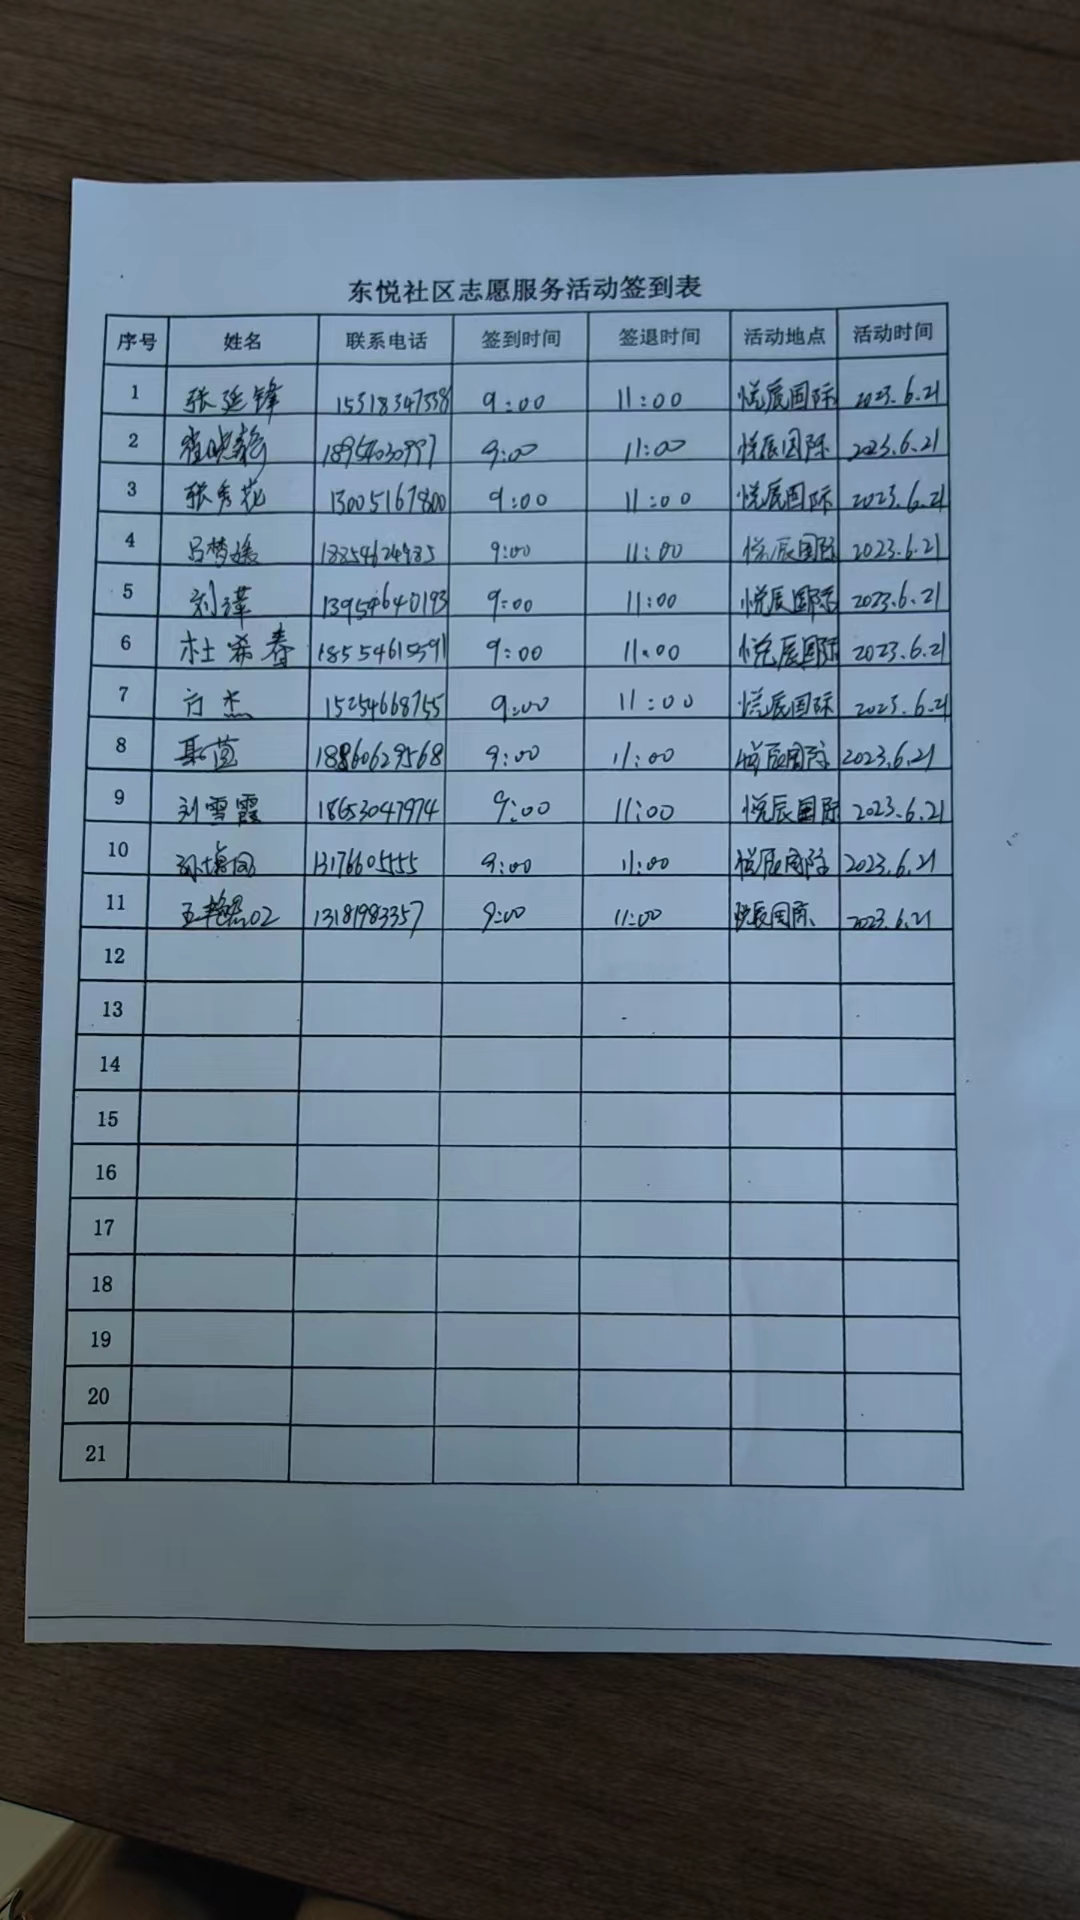 东悦社区志愿服务活动签到表
序号 姓名 联系电话 签到时间 签退时间 活动地点 活动时间
1 张延锋 15318347338 9:00 11:00 悦辰国际 2023.6.21
2 崔晓静 18954030997 9:00 11:00 悦辰国际 2023.6.21
3 张秀花 13005167800 9:00 11:00 悦辰国际 2023.6.21
4 吕梦媛 9:00 11:00 悦辰国际 2023.6.21
5 刘 13954640193 9:00 11:00 悦辰国际 2023.6.21
6 杜希春 9:00 11:00 悦辰国际 2023.6.21
7 方杰 15254668755 9:00 11:00 悦辰国际 2023.6.21
8 18860629568 9:00 11:00 悦辰国际 2023.6.21
9 刘雪霞 18653047974 9:00 11:00 悦辰国际 2023.6.21
10 13176605555 9:00 11:00 悦辰国际 2023.6.21
11 13181983357 9:00 11:00 悦辰国际 2023.6.21
12
13
14
15
16
17
18
19
20
21